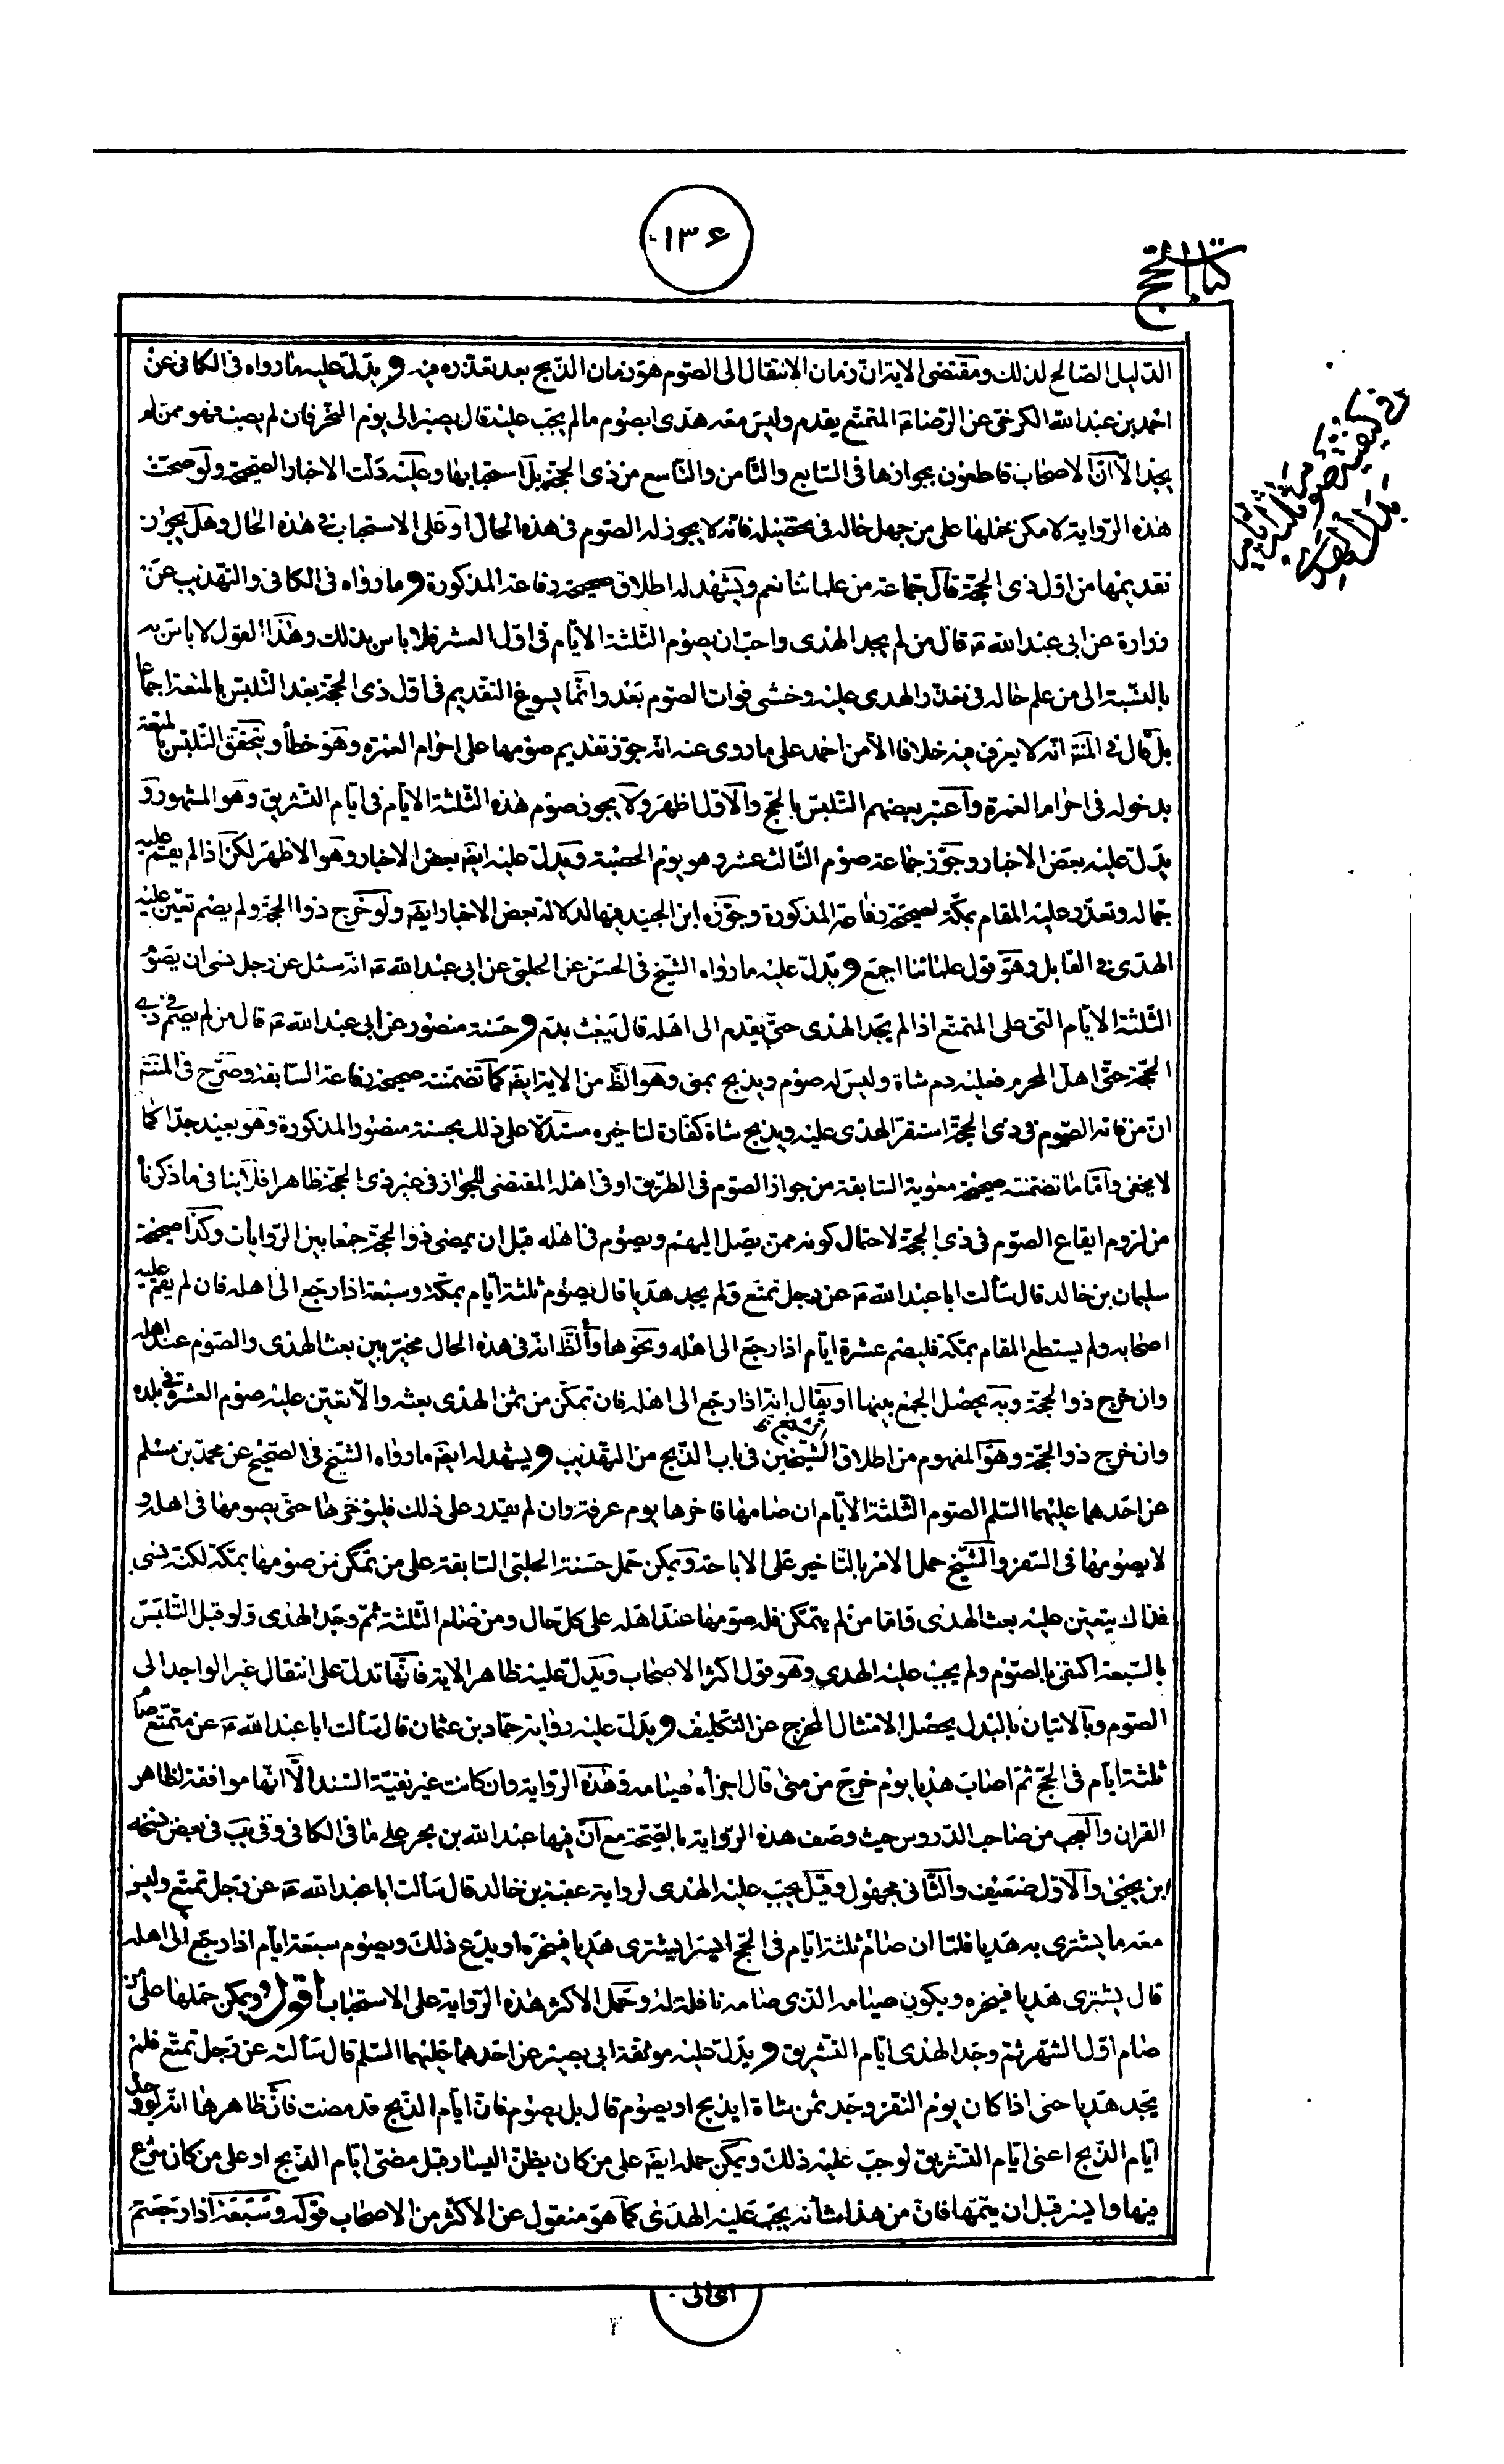 ١٣۶
كتاب الحج
في كيفية صوم ثلثة ايام بدل الهدي
الدّليل الصّالح لذلك ومقتضى الاية انّ زمان الانتقال الى الصّوم هو زمان الذّبح بعد تعذّره منه و يدلّ عليه ما رواه فى الكافى عن
احمد بن عبد الله الكرخى عن الرّضا ع المتمتّع يقدم وليس معه هدى ايصوم ما لم يجب عليه قال يصبر الى يوم النّحر فان لم يصب فهو ممن لم
يجد الّا انّ الاصحاب قاطعون بجوازها فى السّابع والثّامن والتّاسع من ذى الحجّة بل استحبابها وعليه دلّت الاخبار الصّحيحة ولو صحّت
هذه الرّواية لامكن حملها على من جهل حاله فى تحصيله فانّه لا يجوز له الصّوم فى هذه الحال او على الاستحباب فى هذه الحال وهل يجوز
تقديمها من اوّل ذى الحجّة قال جماعة من علمائنا نعم ويشهد له اطلاق صحيحة رفاعة المذكورة و ما رواه فى الكافى والتّهذيب عن
زرارة عن ابى عبد الله ع قال من لم يجد الهدى واحبّ ان يصوم الثّلثة الايّام فى اوّل العشر فلا باس بذلك وهذا القول لا باس به
بالنّسبة الى من علم حاله فى تعذّر الهدى عليه وخشى فوات الصّوم بعد وانّما يسوغ التّقديم فى اوّل ذى الحجّة بعد التّلبّس بالمتعة اجماعا
بل قال فى المنتهى انّه لا يعرف فيه خلافا الّا من احمد على ما روى عنه انّه جوّز تقديم صومها على احرام العمرة وهو خطأ ويتحقّق التّلبّس بالمتعة
بدخوله فى احرام العمرة واعتبر بعضهم التّلبّس بالحجّ والاوّل اظهر ولا يجوز صوم هذه الثّلثة الايّام فى ايّام التّشريق وهو المشهور و
يدلّ عليه بعض الاخبار وجوّز جماعة صوم الثّالث عشر وهو يوم الحصبة ويدلّ عليه ايضا بعض الاخبار وهو الاظهر لكن اذا لم يقم عليه
جمّاله وتعذّر عليه المقام بمكّة لصحيحة رفاعة المذكورة وجوّزه ابن الجنيد فيها لدلالة بعض الاخبار ايضا ولو خرج ذو الحجّة ولم يصم تعيّن عليه
الهدى فى القابل وهو قول علمائنا اجمع و يدلّ عليه ما رواه الشّيخ فى الحسن عن الحلبى عن ابى عبد الله ع انّه سئل عن رجل نسى ان يصوم
الثّلثة الايّام الّتى على المتمتع اذا لم يجد الهدى حتّى يقدم الى اهله قال يبعث بدم و حسنة منصور عن ابى عبد الله ع قال من لم يصم فى ذى
الحجّة حتّى اهلّ المحرم فعليه دم شاة وليس له صوم ويذبح بمنى وهو الظّ من الاية ايضا كما تضمنته صحيحة رفاعة السّابقة وصرّح فى المنتهى
انّ من فاته الصّوم فى ذى الحجّة استقرّ الهدى عليه ويذبح شاة كفّارة لتاخيره مستدلّا على ذلك بحسنة منصور المذكورة وهو بعيد جدّا كما
لا يخفى وامّا ما تضمنته صحيحة معوية السّابقة من جواز الصّوم فى الطّريق او فى اهله المقتضى للجواز فى غير ذى الحجّة ظاهرا فلا ينافى ما ذكرنا
من لزوم ايقاع الصّوم فى ذى الحجّة لاحتمال كونه ممن يصل اليهم ويصوم فى اهله قبل ان يمضى ذو الحجّة جمعا بين الرّوايات وكذا صحيحة
سليمان بن خالد قال سألت ابا عبد الله ع عن رجل تمتّع ولم يجد هديا قال يصوم ثلثة ايّام بمكّة وسبعة اذا رجع الى اهله فان لم يقم عليه
اصحابه ولم يستطع المقام بمكّة فليصم عشرة ايّام اذا رجع الى اهله ونحوها والظّ انّه فى هذه الحال مخيّر بين بعث الهدى والصّوم عند اهله
وان خرج ذو الحجّة وبه يحصل الجمع بينها او يقال انّه اذا رجع الى اهله فان تمكّن من ثمن الهدى بعثه والّا تعيّن عليه صوم العشرة فى بلده
وان خرج ذو الحجّة وهو المفهوم من اطلاق الشّيخين فى باب الذّبح من التهذيب و يشهد له ايضا ما رواه الشّيخ فى الصّحيح عن محمد بن مسلم
عن احدهما عليهما السّلم الصّوم الثّلثة الايّام ان صامها فاخرها يوم عرفة وان لم يقدر على ذلك فليؤخّرها حتّى يصومها فى اهله و
لا يصومها فى السّفر والشّيخ حمل الامر بالتّاخير على الاباحة ويمكن حمل حسنة الحلبى السّابقة على من تمكّن من صومها بمكّة لكنّه نسى
فذاك يتعيّن عليه بعث الهدى وامّا من لم يتمكّن فله صومها عند اهله على كلّ حال ومن صام الثّلثة ثمّ وجد الهدى ولو قبل التّلبّس
بالسّبعة اكتفى بالصّوم ولم يجب عليه الهدى وهو قول اكثر الاصحاب ويدلّ عليه ظاهر الاية فانّها تدلّ على انتقال غير الواجد الى
الصّوم وبالاتيان بالبدل يحصل الامتثال المخرج عن التكليف و يدلّ عليه رواية حمّاد بن عثمان قال سألت ابا عبد الله ع عن متمتّع صام
ثلثة ايّام فى الحجّ ثمّ اصاب هديا يوم خرج من منى قال اجزأه صيامه وهذه الرّواية وان كانت غير نقيّة السّند الّا انّها موافقة لظاهر
القران والعجب من صاحب الدّروس حيث وصف هذه الرّواية بالصّحّة مع انّ فيها عبد الله بن بحر على ما فى الكافى وفى يب فى بعض نسخه
ابن يحيى والاوّل ضعيف والثّانى مجهول وقيل يجب عليه الهدى لرواية عقبة بن خالد قال سألت ابا عبد الله ع عن رجل تمتّع وليس
معه ما يشترى به هديا فلمّا ان صام ثلثة ايّام فى الحجّ ايسر ايشترى هديا فينحره او يدع ذلك ويصوم سبعة ايّام اذا رجع الى اهله
قال يشترى هديا فينحره ويكون صيامه الذى صامه نافلة له وحمل الاكثر هذه الرّواية على الاستحباب اقول ويمكن حملها على من
صام اوّل الشّهر ثمّ وجد الهدى ايّام التّشريق و يدلّ عليه موثّقة ابى بصير عن احدهما عليهما السّلم قال سألته عن رجل تمتّع فلم
يجد هديا حتى اذا كان يوم النّفر وجد ثمن شاة ايذبح او يصوم قال بل يصوم فانّ ايّام الذّبح قد مضت فانّ ظاهرها انّه لو وجد
ايّام الذّبح اعنى ايّام التّشريق لوجب عليه ذلك ويمكن حمله ايضا على من كان يظنّ اليسار قبل مضىّ ايّام الذّبح او على من كان شرع
فيها وايسر قبل ان يتمّها فانّ من هذا شأنه يجب عليه الهدى كما هو منقول عن الاكثر من الاصحاب قوله وسبعة اذا رجعتم